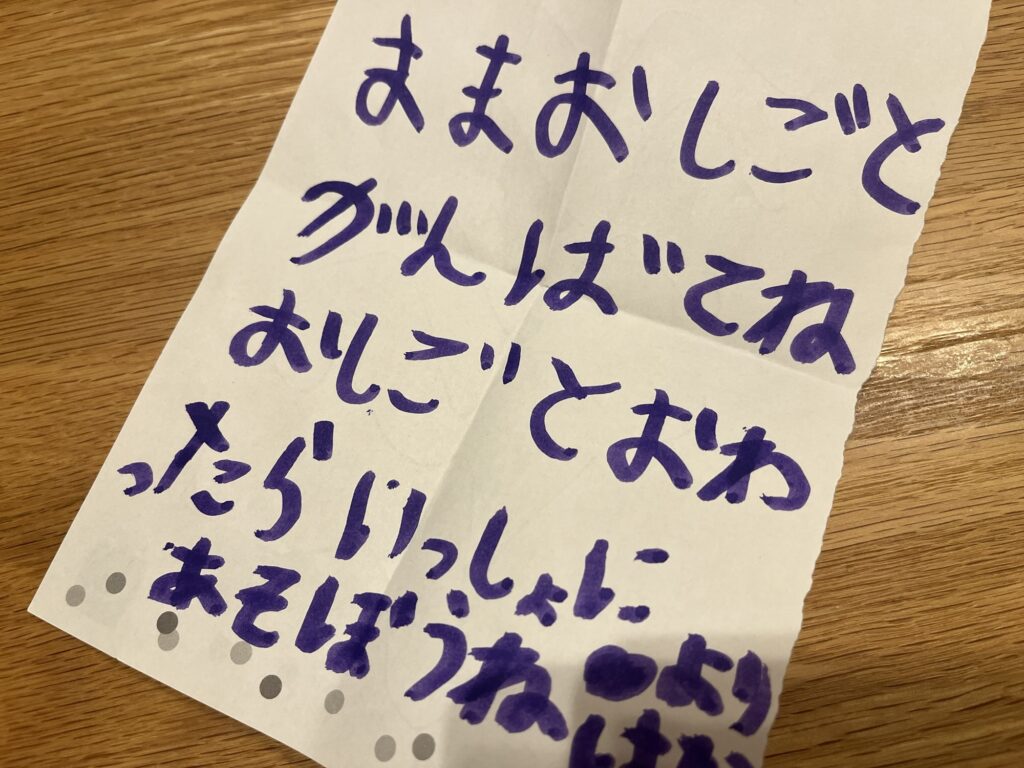 ままおしごと
がんばてね
おしごとおわ
ったらいっしょに
あそぼうね より